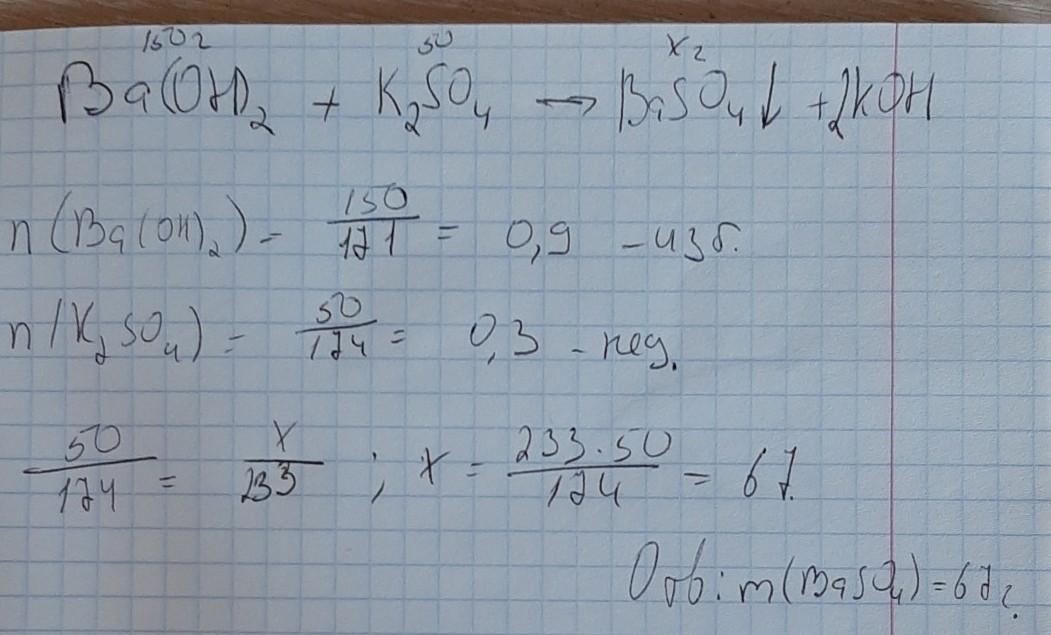 150 г 50 x г
Ba(OH)₂ + K₂SO₄ → BaSO₄↓ + 2KOH
n(Ba(OH)₂) = 150/171 = 0,9 – изб.
n(K₂SO₄) = 50/174 = 0,3 – нед.
50/174 = x/233 ; x = 233·50/174 = 67.
Отв: m(BaSO₄) = 67 г.